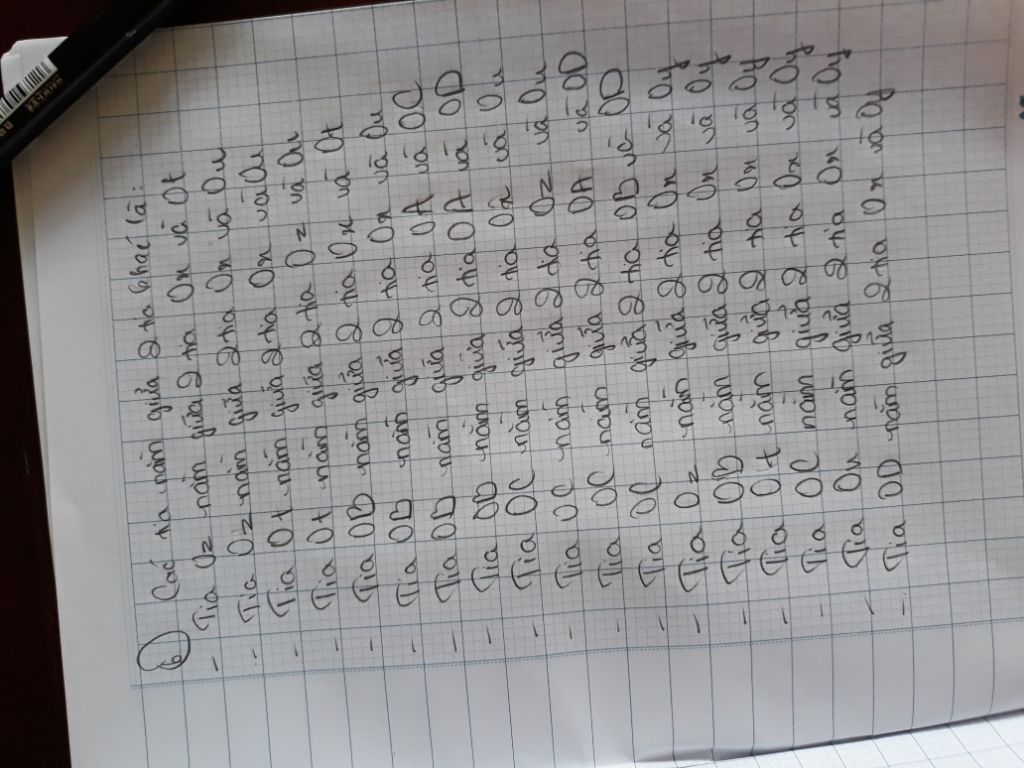 6 Các tia nằm giữa 2 tia khác là:
- Tia Oz nằm giữa 2 tia Ox và Ot
- Tia Oz nằm giữa 2 tia Ox và Ou
- Tia Ot nằm giữa 2 tia Ox và Ou
- Tia Ot nằm giữa 2 tia Oz và Ou
- Tia OB nằm giữa 2 tia Ox và Ot
- Tia OB nằm giữa 2 tia Ox và Ou
- Tia OB nằm giữa 2 tia OA và OC
- Tia OB nằm giữa 2 tia OA và OD
- Tia OC nằm giữa 2 tia Ox và Ou
- Tia OC nằm giữa 2 tia Oz và Ou
- Tia OC nằm giữa 2 tia OA và OD
- Tia OC nằm giữa 2 tia OB và OD
- Tia Oz nằm giữa 2 tia Ox và Oy
- Tia OB nằm giữa 2 tia Ox và Oy
- Tia Ot nằm giữa 2 tia Ox và Oy
- Tia OC nằm giữa 2 tia Ox và Oy
- Tia Ou nằm giữa 2 tia Ox và Oy
- Tia OD nằm giữa 2 tia Ox và Oy